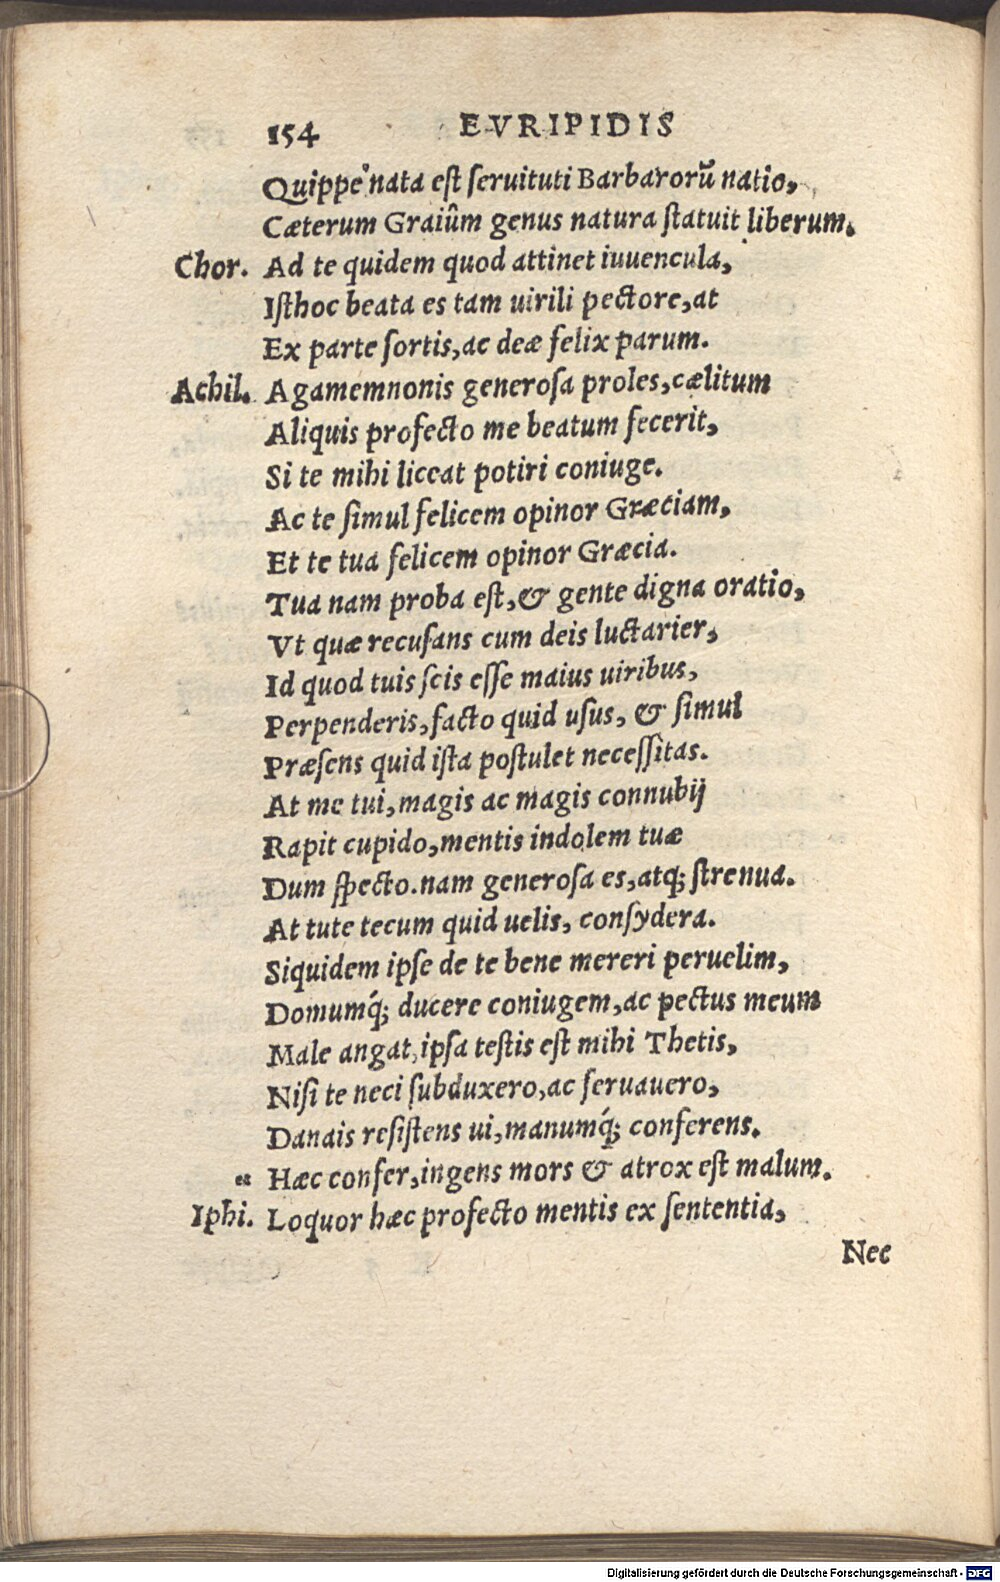 154 EVRIPIDIS
Quippe nata est seruituti Barbarorũ natio,
Cæterum Graiûm genus natura statuit liberum.
Chor. Ad te quidem quod attinet iuuencula,
Isthoc beata es tam uirili pectore, at
Ex parte sortis, ac deæ felix parum.
Achil. Agamemnonis generosa proles, cælitum
Aliquis profecto me beatum fecerit,
Si te mihi liceat potiri coniuge.
Ac te simul felicem opinor Græciam,
Et te tua felicem opinor Græcia.
Tua nam proba est, & gente digna oratio,
Vt quæ recusans cum deis luctarier,
Id quod tuis scis esse maius uiribus,
Perpenderis, facto quid usus, & simul
Præsens quid ista postulet necessitas.
At me tui, magis ac magis connubij
Rapit cupido, mentis indolem tuæ
Dum specto. nam generosa es, atq; strenua.
At tute tecum quid uelis, consydera.
Siquidem ipse de te bene mereri peruelim,
Domumq́; ducere coniugem, ac pectus meum
Male angat, ipsa testis est mihi Thetis,
Nisi te neci subduxero, ac seruauero,
Danais resistens ui, manumq́; conferens.
„ Hæc confer, ingens mors & atrox est malum.
Iphi. Loquor hæc profecto mentis ex sententia,
Nec
Digitalisierung gefördert durch die Deutsche Forschungsgemeinschaft - DFG